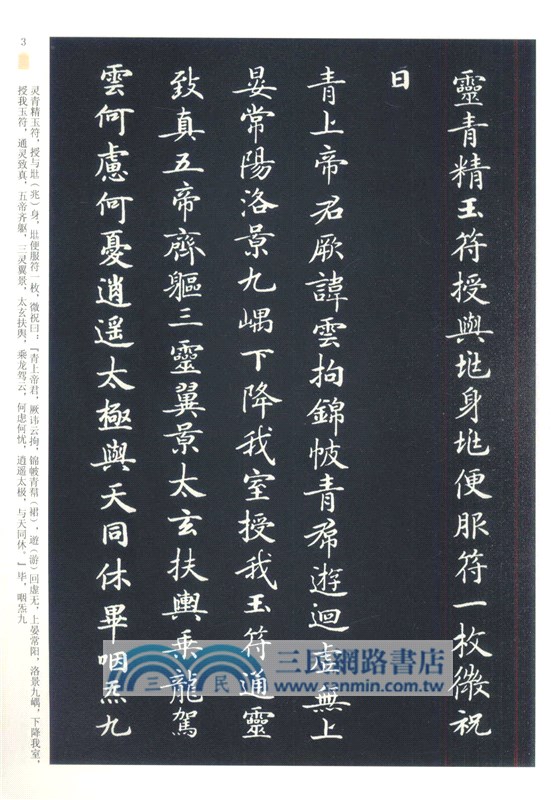 靈青精玉符授與垗身垗便服符一枚微祝
曰
青上帝君厥諱雲拘錦帔青帬遊迴虛無上
晏常陽洛景九嵎下降我室授我玉符通靈
致真五帝齊軀三靈翼景太玄扶輿乘龍駕
雲何慮何憂逍遙太極與天同休畢咽炁九
3
灵青精玉符，授与垗（兆）身，垗便服符一枚，微祝曰：『青上帝君，厥讳云拘，锦帔青帬（裙），遊（游）回虚无，上晏常阳，洛景九嵎，下降我室，
授我玉符，通灵致真，五帝齐躯，三灵翼景，太玄扶舆，乘龙驾云，何虑何忧，逍遥太极，与天同休。』毕，咽炁九
三民
三民網路書店
www.sanmin.com.tw